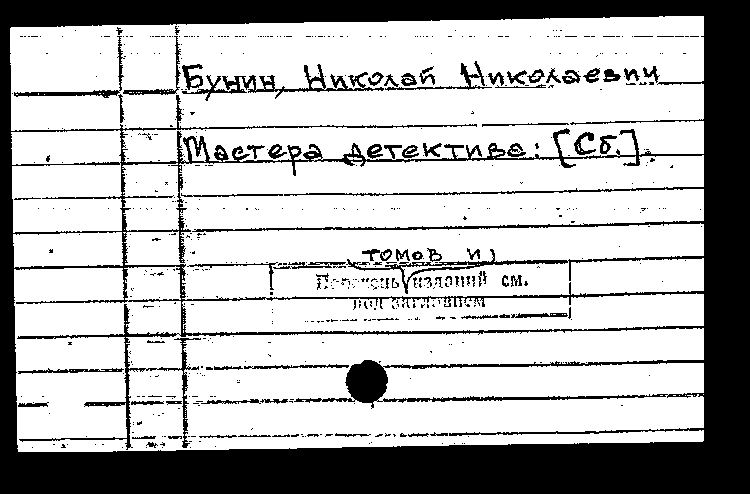 Бунин, Николай Николаевич
Мастера детектива: [Сб.].
томов и
Перечень изданий см.
под заглавием